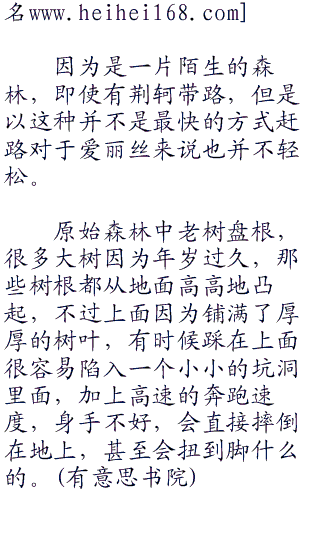 名www.heihei168.com]
因为是一片陌生的森
林，即使有荆轲带路，但是
以这种并不是最快的方式赶
路对于爱丽丝来说也并不轻
松。
原始森林中老树盘根，
很多大树因为年岁过久，那
些树根都从地面高高地凸
起，不过上面因为铺满了厚
厚的树叶，有时候踩在上面
很容易陷入一个小小的坑洞
里面，加上高速的奔跑速
度，身手不好，会直接摔倒
在地上，甚至会扭到脚什么
的。(有意思书院)